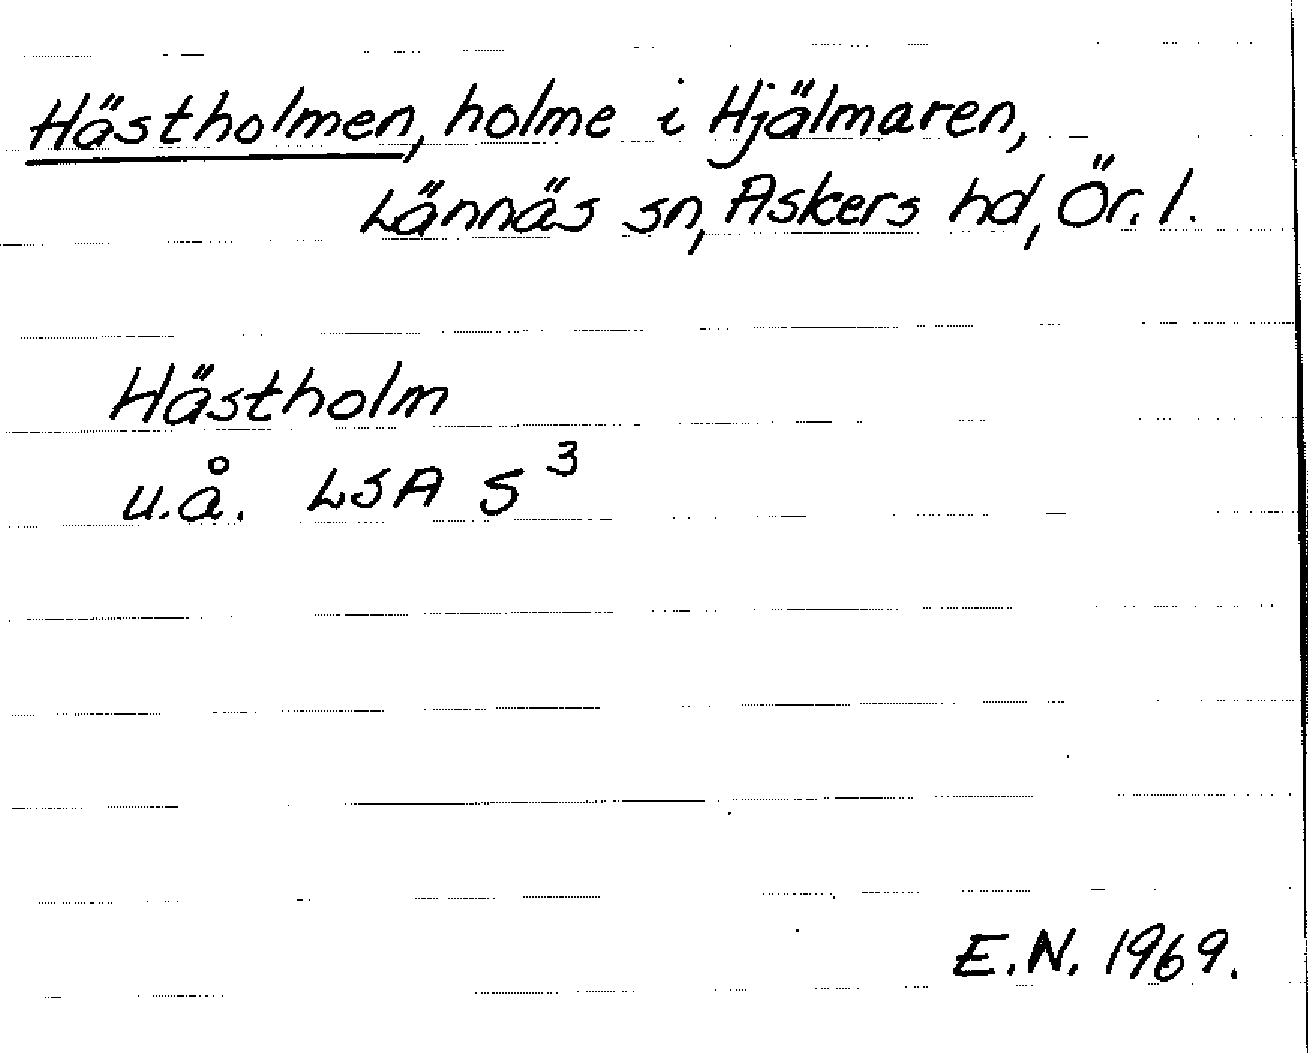 Hästholmen, holme i Hjälmaren,
Lännäs sn, Askers hd, Ör. l.
Hästholm
u.å. LSA S³
E.N. 1969.